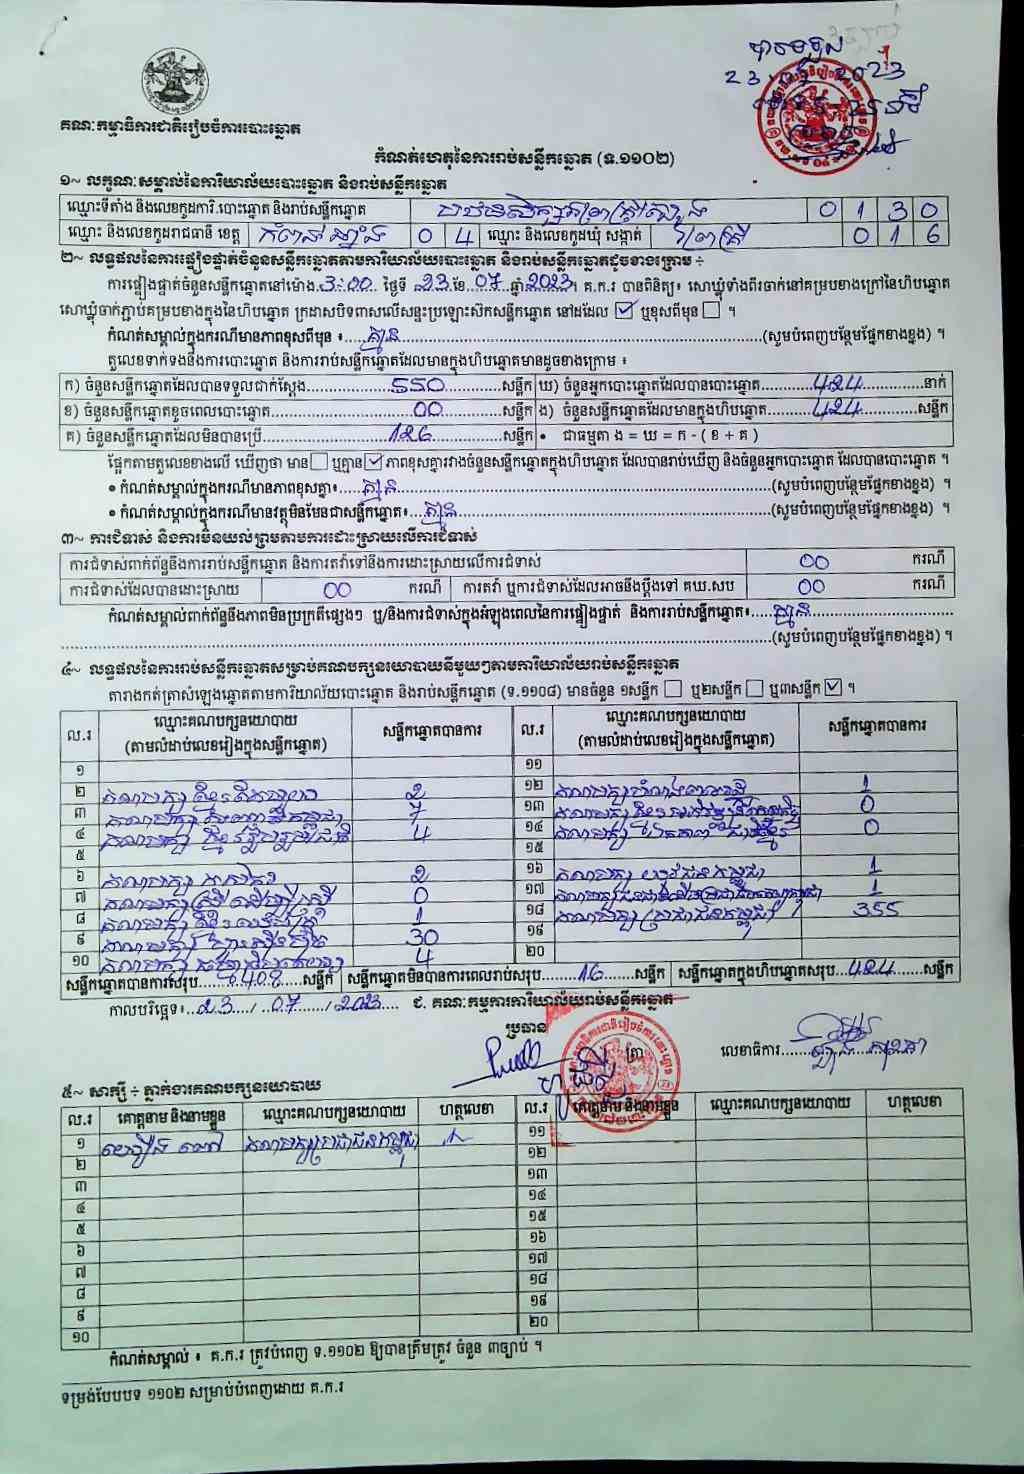 បានទទួល
23 2023
គណៈកម្មាធិការជាតិរៀបចំការបោះឆ្នោត
កំណត់ហេតុនៃការរាប់សន្លឹកឆ្នោត (ទ.១១០២)
១~ លក្ខណៈសម្គាល់នៃការិយាល័យបោះឆ្នោត និងរាប់សន្លឹកឆ្នោត
ឈ្មោះទីតាំង និងលេខកូដការិ.បោះឆ្នោត និងរាប់សន្លឹកឆ្នោត 0 1 3 0
ឈ្មោះ និងលេខកូដរាជធានី ខេត្ត កំពង់ឆ្នាំង 0 4 ឈ្មោះ និងលេខកូដឃុំ សង្កាត់ 0 1 6
២~ លទ្ធផលនៃការផ្ទៀងផ្ទាត់ចំនួនសន្លឹកឆ្នោតតាមការិយាល័យបោះឆ្នោត និងរាប់សន្លឹកឆ្នោតដូចខាងក្រោម ៖
ការផ្ទៀងផ្ទាត់ចំនួនសន្លឹកឆ្នោតនៅម៉ោង 3:00 ថ្ងៃទី 23 ខែ 07 ឆ្នាំ 2023 គ.ក.រ បានពិនិត្យ៖ សោឃ្លុំទាំងពីរចាក់នៅគម្របខាងក្រៅនៃហិបឆ្នោត
សោឃ្លុំចាក់ភ្ជាប់គម្របខាងក្នុងនៃហិបឆ្នោត ក្រដាសបិទពាសលើសន្ទះប្រឡោះស៊កសន្លឹកឆ្នោត នៅដដែល ☑ ឬខុសពីមុន ☐ ។
កំណត់សម្គាល់ក្នុងករណីមានភាពខុសពីមុន ៖ គ្មាន (សូមបំពេញបន្ថែមផ្នែកខាងខ្នង) ។
តួលេខទាក់ទងនឹងការបោះឆ្នោត និងការរាប់សន្លឹកឆ្នោតដែលមានក្នុងហិបឆ្នោតមានដូចខាងក្រោម ៖
ក) ចំនួនសន្លឹកឆ្នោតដែលបានទទួលជាក់ស្តែង 550 សន្លឹក ឃ) ចំនួនអ្នកបោះឆ្នោតដែលបានបោះឆ្នោត 424 នាក់
ខ) ចំនួនសន្លឹកឆ្នោតខូចពេលបោះឆ្នោត 00 សន្លឹក ង) ចំនួនសន្លឹកឆ្នោតដែលមានក្នុងហិបឆ្នោត 424 សន្លឹក
គ) ចំនួនសន្លឹកឆ្នោតដែលមិនបានប្រើ 126 សន្លឹក • ជាធម្មតា ង = ឃ = ក - ( ខ + គ )
ផ្អែកតាមតួលេខខាងលើ ឃើញថា មាន ☐ ឬគ្មាន ☑ ភាពខុសគ្នារវាងចំនួនសន្លឹកឆ្នោតក្នុងហិបឆ្នោត ដែលបានរាប់ឃើញ និងចំនួនអ្នកបោះឆ្នោត ដែលបានបោះឆ្នោត ។
• កំណត់សម្គាល់ក្នុងករណីមានភាពខុសគ្នា៖ គ្មាន (សូមបំពេញបន្ថែមផ្នែកខាងខ្នង) ។
• កំណត់សម្គាល់ក្នុងករណីមានវត្ថុមិនមែនជាសន្លឹកឆ្នោត៖ គ្មាន (សូមបំពេញបន្ថែមផ្នែកខាងខ្នង) ។
៣~ ការជំទាស់ និងការមិនយល់ព្រមតាមការដោះស្រាយលើការជំទាស់
ការជំទាស់ពាក់ព័ន្ធនឹងការរាប់សន្លឹកឆ្នោត និងការតវ៉ាទៅនឹងការដោះស្រាយលើការជំទាស់ 00 ករណី
ការជំទាស់ដែលបានដោះស្រាយ 00 ករណី ការតវ៉ា ឬការជំទាស់ដែលអាចនឹងប្តឹងទៅ គឃ.សប 00 ករណី
កំណត់សម្គាល់ពាក់ព័ន្ធនឹងភាពមិនប្រក្រតីផ្សេងៗ ឬ/និងការជំទាស់ក្នុងអំឡុងពេលនៃការផ្ទៀងផ្ទាត់ និងការរាប់សន្លឹកឆ្នោត៖ គ្មាន
(សូមបំពេញបន្ថែមផ្នែកខាងខ្នង) ។
៤~ លទ្ធផលនៃការរាប់សន្លឹកឆ្នោតសម្រាប់គណបក្សនយោបាយនីមួយៗតាមការិយាល័យរាប់សន្លឹកឆ្នោត
តារាងកត់ត្រាសំឡេងឆ្នោតតាមការិយាល័យបោះឆ្នោត និងរាប់សន្លឹកឆ្នោត (ទ.១១០៨) មានចំនួន ១សន្លឹក ☐ ឬ២សន្លឹក ☐ ឬ៣សន្លឹក ☑ ។
ល.រ ឈ្មោះគណបក្សនយោបាយ (តាមលំដាប់លេខរៀងក្នុងសន្លឹកឆ្នោត) សន្លឹកឆ្នោតបានការ ល.រ ឈ្មោះគណបក្សនយោបាយ (តាមលំដាប់លេខរៀងក្នុងសន្លឹកឆ្នោត) សន្លឹកឆ្នោតបានការ
១ ១១
២ គណបក្ស 2 ១២ គណបក្ស 1
៣ គណបក្ស 7 ១៣ គណបក្ស 0
៤ គណបក្ស 4 ១៤ គណបក្ស 0
៥ ១៥
៦ គណបក្ស 2 ១៦ គណបក្ស 1
៧ គណបក្ស 0 ១៧ គណបក្ស 1
៨ គណបក្ស 1 ១៨ គណបក្សប្រជាជនកម្ពុជា 355
៩ គណបក្ស 30 ១៩
១០ គណបក្ស 4 ២០
សន្លឹកឆ្នោតបានការសរុប 408 សន្លឹក សន្លឹកឆ្នោតមិនបានការពេលរាប់សរុប 16 សន្លឹក សន្លឹកឆ្នោតក្នុងហិបឆ្នោតសរុប 424 សន្លឹក
កាលបរិច្ឆេទ៖ 23 / 07 / 2023 ជ. គណៈកម្មការការិយាល័យរាប់សន្លឹកឆ្នោត
ប្រធាន
ត្រា
លេខាធិការ
៥~ សាក្សី ÷ ភ្នាក់ងារគណបក្សនយោបាយ
ល.រ គោត្តនាម និងនាមខ្លួន ឈ្មោះគណបក្សនយោបាយ ហត្ថលេខា ល.រ គោត្តនាម និងនាមខ្លួន ឈ្មោះគណបក្សនយោបាយ ហត្ថលេខា
១ គណបក្សប្រជាជនកម្ពុជា ១១
២ ១២
៣ ១៣
៤ ១៤
៥ ១៥
៦ ១៦
៧ ១៧
៨ ១៨
៩ ១៩
១០ ២០
កំណត់សម្គាល់ ៖ គ.ក.រ ត្រូវបំពេញ ទ.១១០២ ឱ្យបានត្រឹមត្រូវ ចំនួន ៣ច្បាប់ ។
ទម្រង់បែបបទ ១១០២ សម្រាប់បំពេញដោយ គ.ក.រ